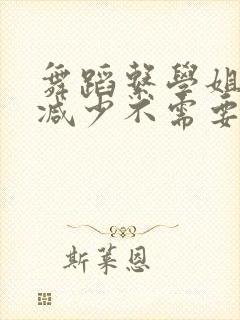 舞蹈繫學姐
減少不需要
斯萊恩